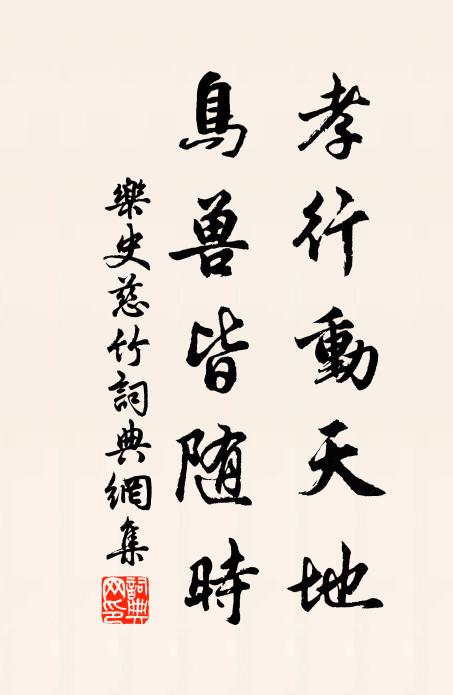 孝行動天地
鳥獸皆随時
樂史慈竹詞典網集
詞典网印